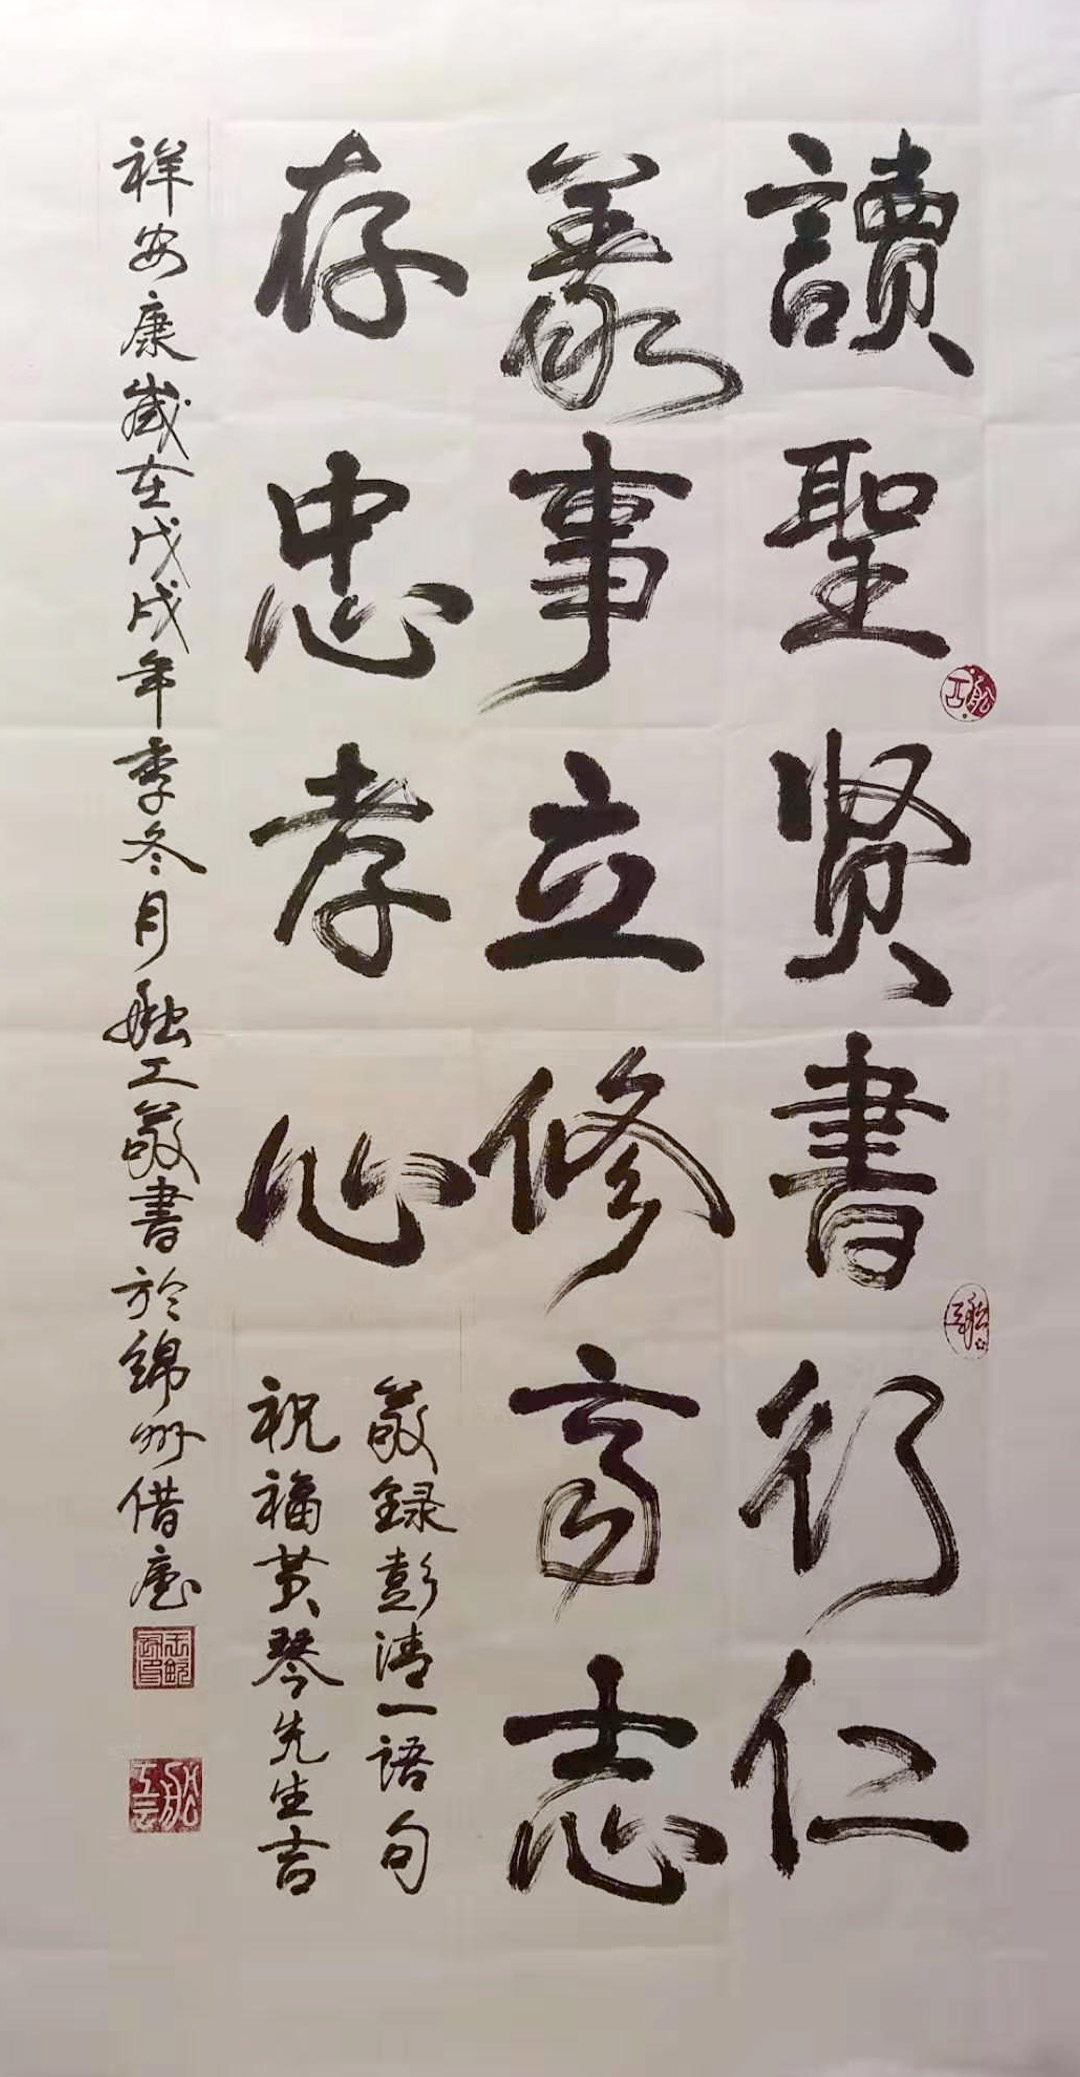 讀聖贤書行仁
義事立修齊志
存忠孝心
敬録彭清一語句
祝福黄琴先生吉
祥安康歲在戊戌年季冬月工敬書於綿州借